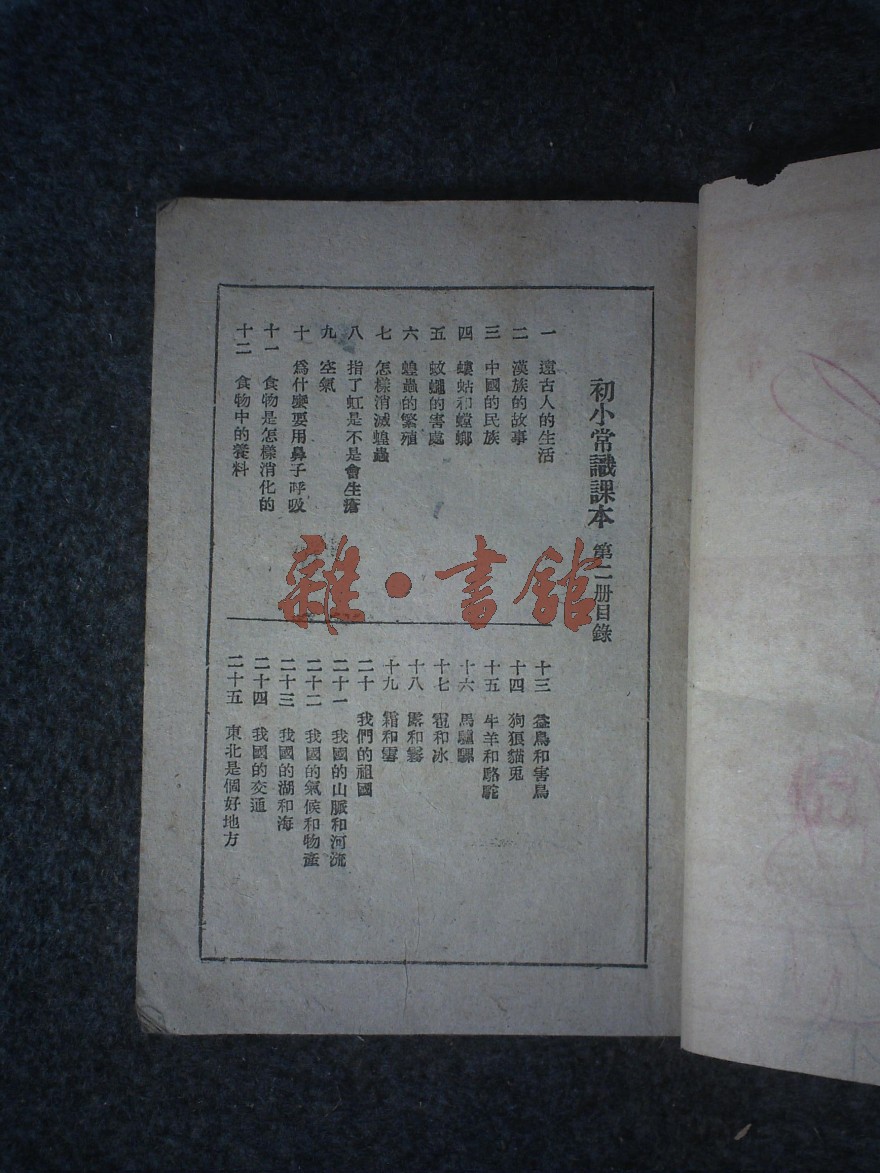 初小常識課本 第二册目錄
一 遠古人的生活
二 漢族的故事
三 中國的民族
四 螻蛄和螳螂
五 蚊蠅的害處
六 蝗蟲的繁殖
七 怎樣消滅蝗蟲
八 指了虹是不是會生瘡
九 空氣
十 爲什麼要用鼻子呼吸
十一 食物是怎樣消化的
十二 食物中的養料
十三 益鳥和害鳥
十四 狗狼貓兎
十五 牛羊和駱駝
十六 馬驢騾
十七 雹和冰
十八 露和霧
十九 霜和雪
二十 我們的祖國
二十一 我國的山脈和河流
二十二 我國的氣候和物產
二十三 我國的湖和海
二十四 我國的交通
二十五 東北是個好地方
雜·書館